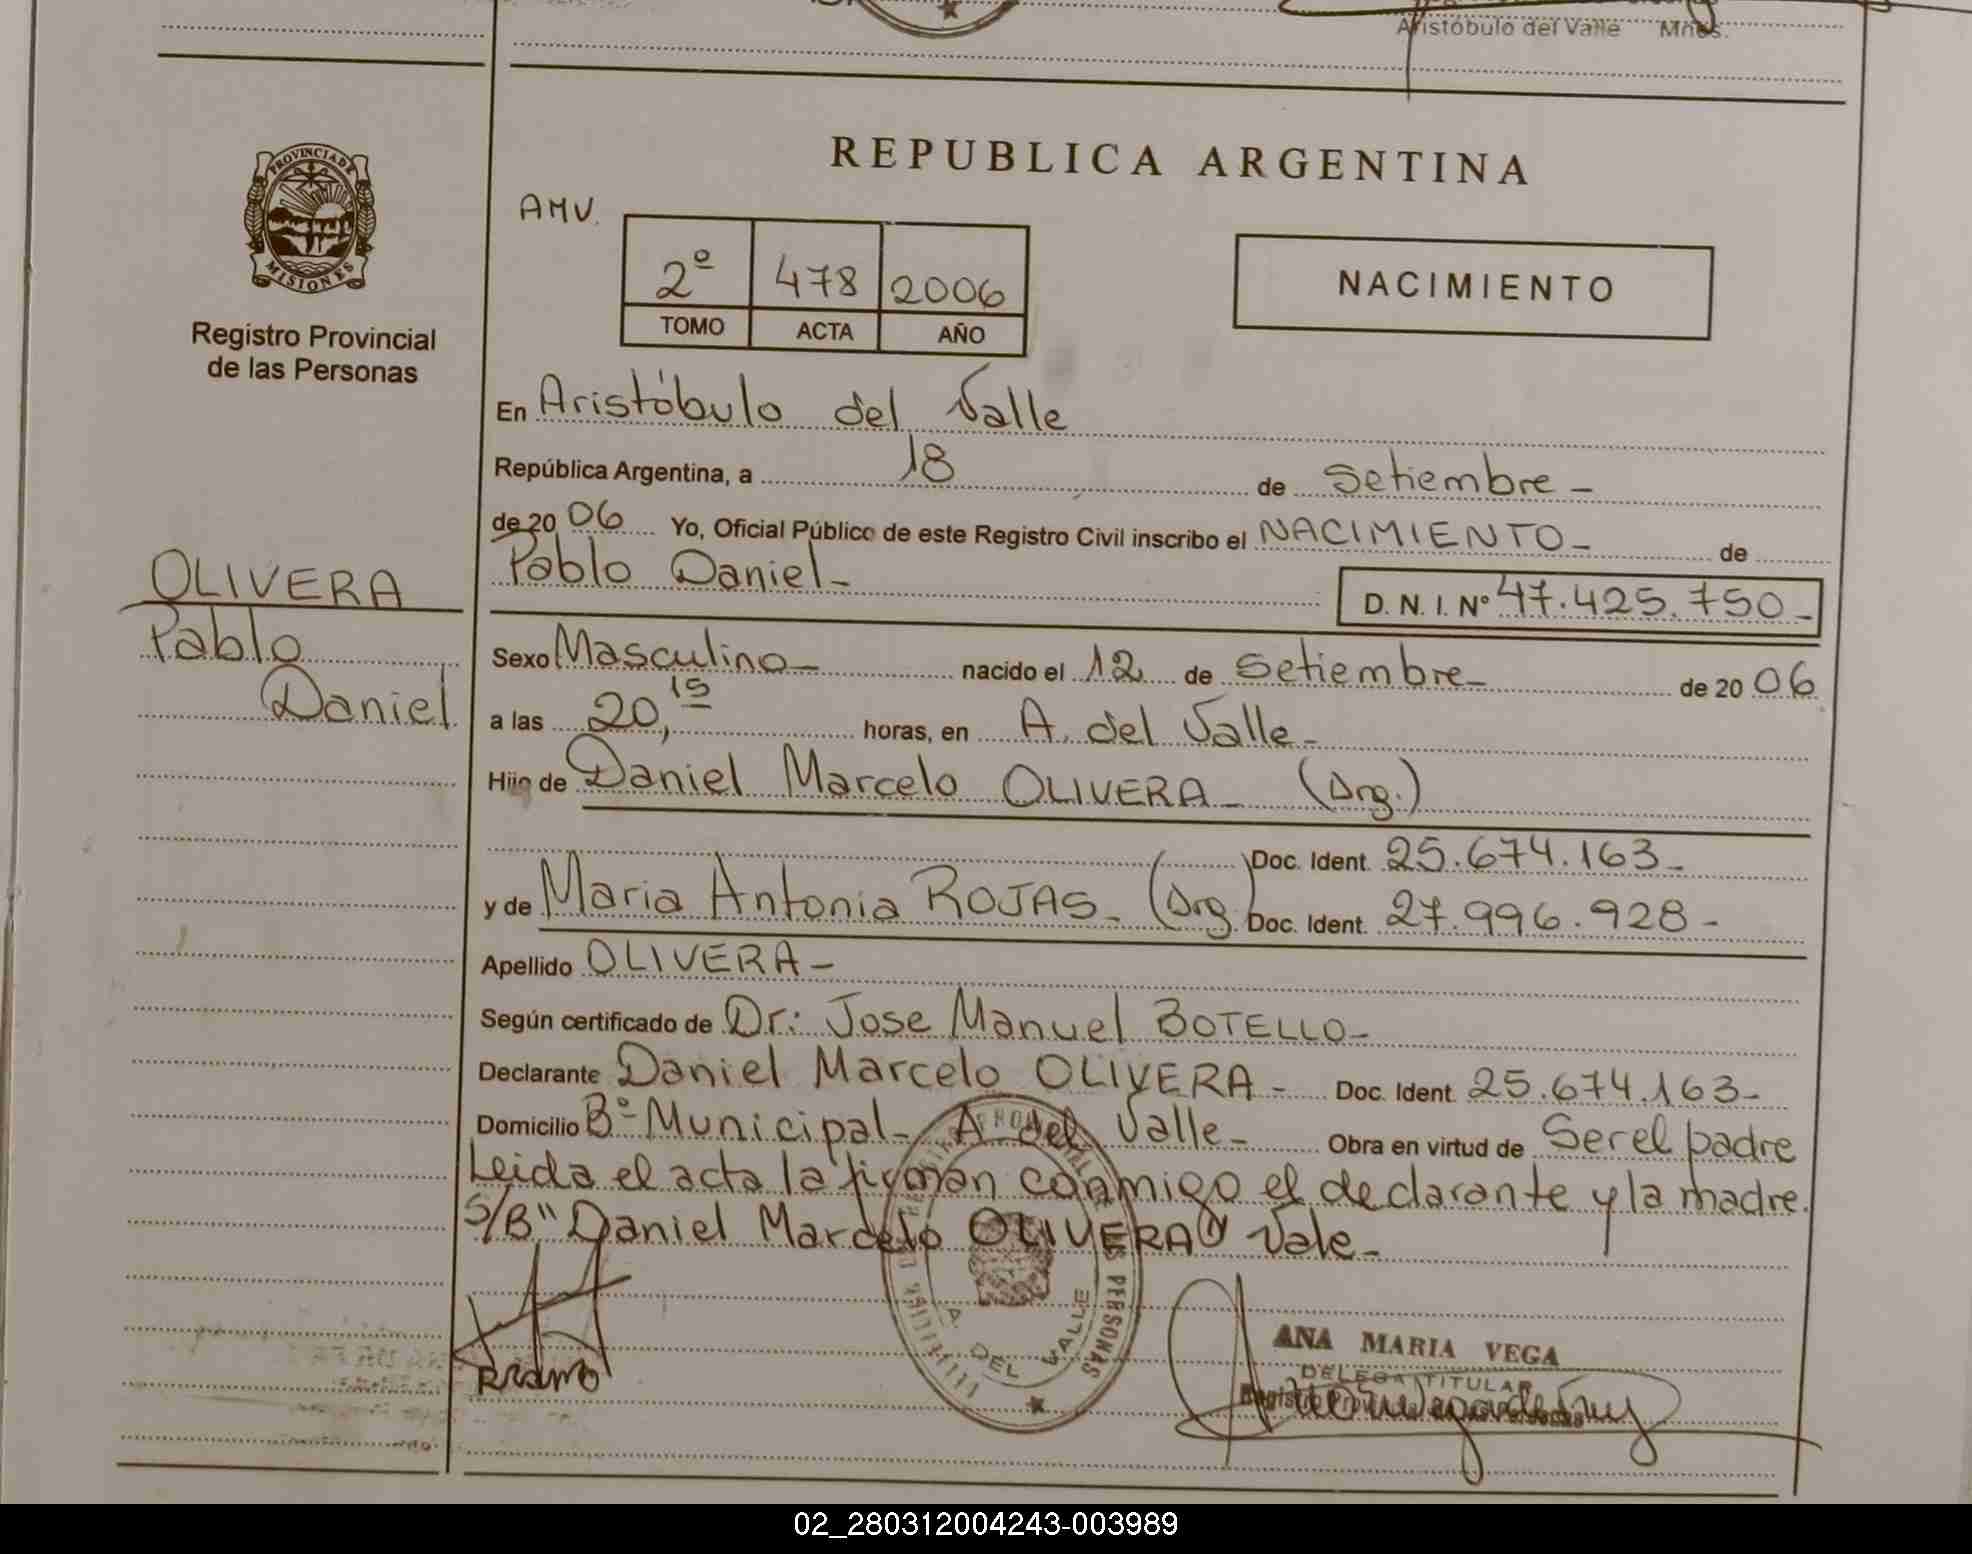 Aristóbulo del Valle Mnes.
PROVINCIA DE
MISIONES
Registro Provincial
de las Personas
OLIVERA
Pablo
Daniel
REPUBLICA ARGENTINA
AMV.
2º 478 2006
TOMO ACTA AÑO
NACIMIENTO
En Aristóbulo del Valle
República Argentina, a 18 de Setiembre -
de 20 06 Yo, Oficial Público de este Registro Civil inscribo el NACIMIENTO - de
Pablo Daniel -
D. N. I. Nº 47.425.750 -
Sexo Masculino - nacido el 12 de Setiembre - de 20 06
a las 20,15 horas, en A. del Valle -
Hijo de Daniel Marcelo OLIVERA - (Arg.)
Doc. Ident. 25.674.163 -
y de Maria Antonia ROJAS - (Arg.) Doc. Ident. 27.996.928 -
Apellido OLIVERA -
Según certificado de Dr: Jose Manuel BOTELLO -
Declarante Daniel Marcelo OLIVERA - Doc. Ident. 25.674.163 -
Domicilio Bº Municipal - A. del Valle - Obra en virtud de Ser el padre
Leida el acta la firman conmigo el declarante y la madre.
S/B "Daniel Marcelo OLIVERA" Vale -
PERSONAS
A. DEL VALLE
ANA MARIA VEGA
DELEGA TITULAR
02_280312004243-003989